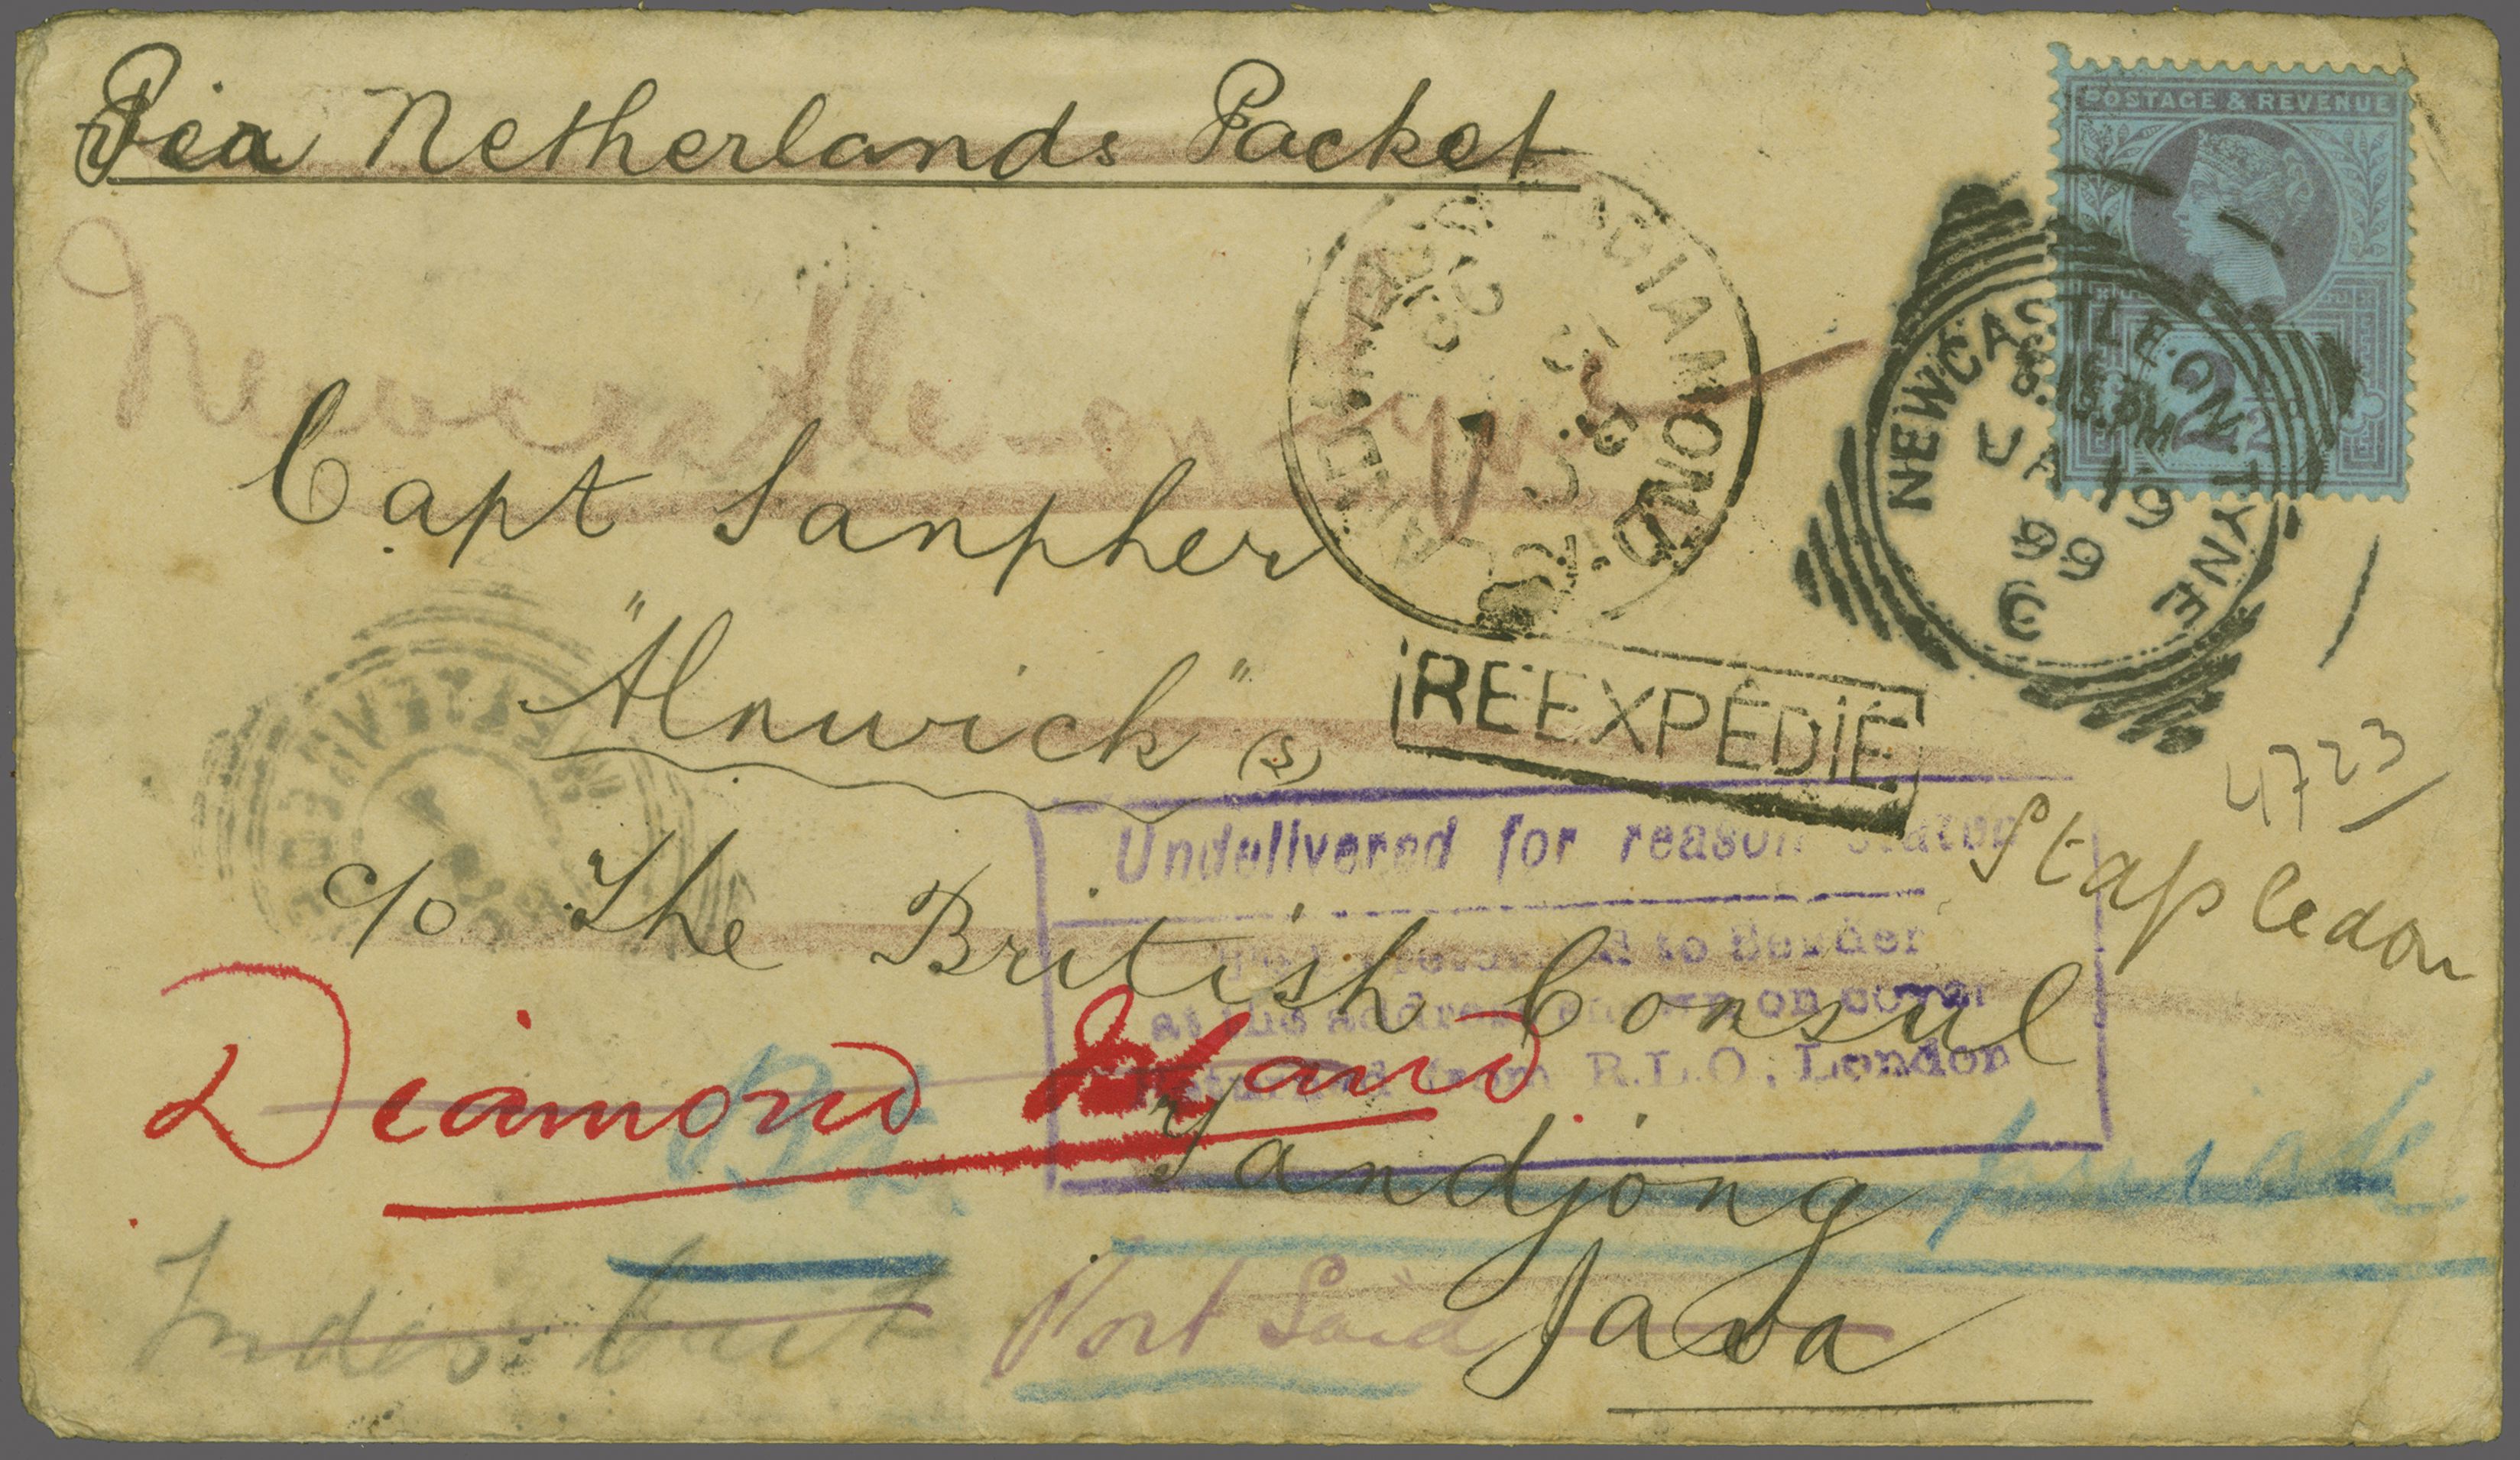 Via Netherlands Packet
POSTAGE & REVENUE
2½ 2½
NEWCASTLE-ON-TYNE
8.15 PM
JA 19
99
C
DIAMOND ISLAND
Newcastle-on-Tyne
Capt Sanpher
"Alnwick" (s)
REEXPÉDIÉ
4723/
Stapledon
c/o The British Consul
Undelivered for reason stated
to Sender
at the address on cover
Returned from R.L.O., London
Diamond Island
Tandjong priok
Port Said
Java